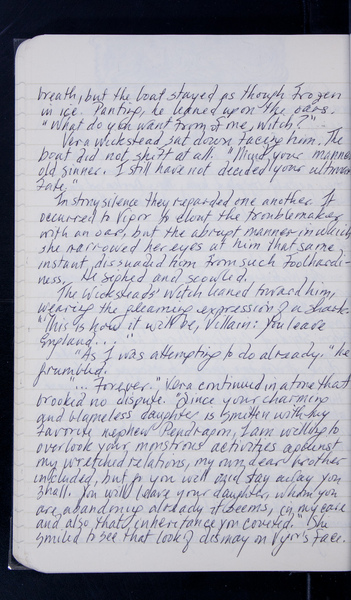 breath, but the boat stayed as though frozen
in ice. Panting, he leaned upon the oars.
"What do you want from of me, witch?"
Vera Wickstead sat down facing him. The
boat did not shift at all. "Mind your manners
old sinner. I still have not decided your ultimate
fate."
In stony silence they regarded one another. It
occurred to Vipor to clout the troublemaker
with an oar, but the abrupt manner in which
she narrowed her eyes at him that same
instant dissuaded him from such foolhardi-
ness. He sighed and scowled.
The Wicksteads' witch leaned toward him,
wearing the gleaming expression of a shark.
"This is how it will be, Villain: You leave
England..."
"As I was attempting to do already," he
grumbled.
"... Forever." Vera continued in a tone that
brooked no dispute. "Since your charming
and blameless daughter is smitten with my
favorite nephew Pendragon, I am willing to
overlook your monstrous activities against
my wretched relations, my own dear brother
included, but go you will and stay away you
shall. You will leave your daughter, whom you
are abandoning already it seems, in my care
and also that inheritance you coveted." She
smiled to see that look of dismay on Vipor's face.